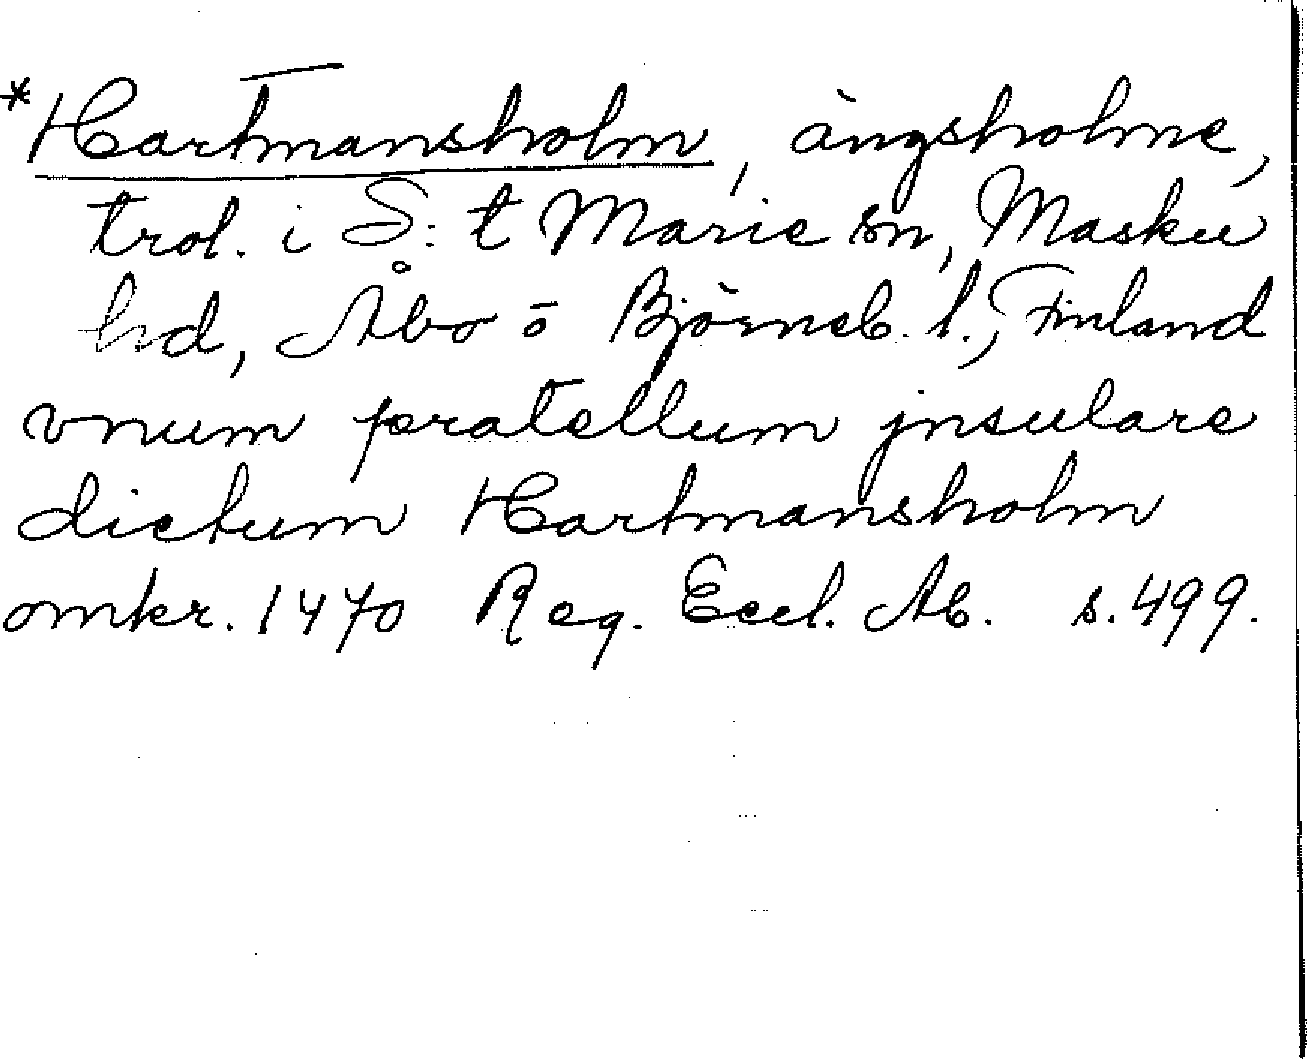 *Hartmansholm, ängsholme,
trol. i S:t Marie sn, Masku
hd, Åbo o Björneb. l., Finland
vnum pratellum jnsulare
dictum Hartmansholm
omkr. 1470 Reg. Eccl. Ab. s. 499.